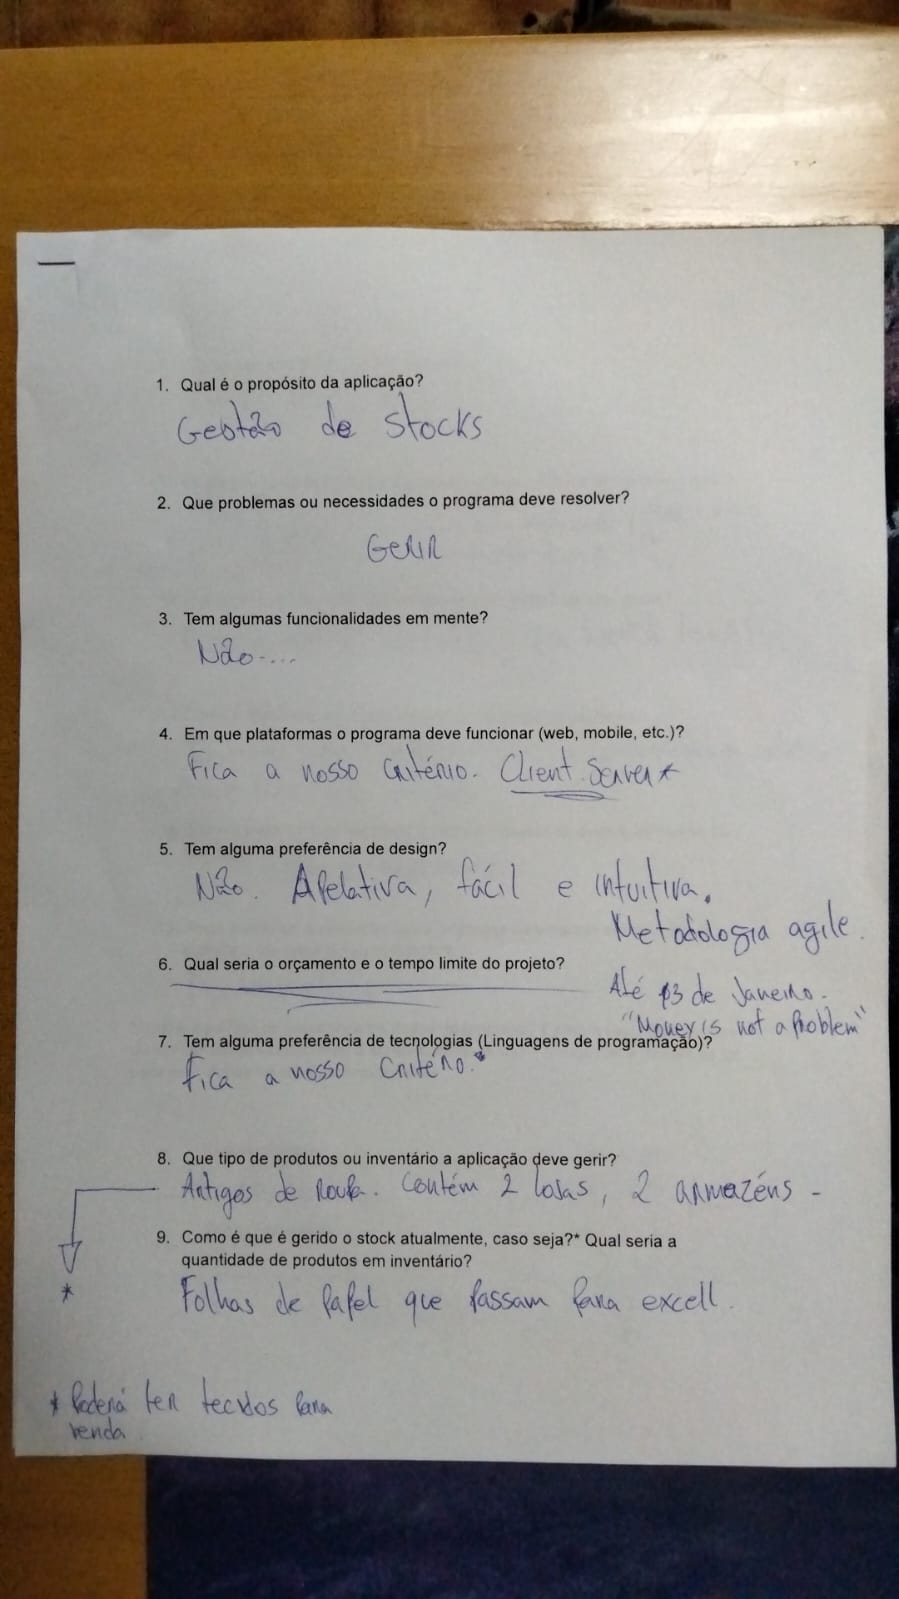 1. Qual é o propósito da aplicação?
Gestão de stocks
2. Que problemas ou necessidades o programa deve resolver?
Gerir
3. Tem algumas funcionalidades em mente?
Não....
4. Em que plataformas o programa deve funcionar (web, mobile, etc.)?
Fica a nosso critério. Client Server*
5. Tem alguma preferência de design?
Não. Apelativa, fácil e intuitiva.
Metodologia agile.
6. Qual seria o orçamento e o tempo limite do projeto?
Até 13 de Janeiro.
"Money is not a problem"
7. Tem alguma preferência de tecnologias (Linguagens de programação)?
Fica a nosso critério.*
8. Que tipo de produtos ou inventário a aplicação deve gerir?
Artigos de roupa. Contém 2 lojas, 2 armazéns -
9. Como é que é gerido o stock atualmente, caso seja?* Qual seria a
quantidade de produtos em inventário?
*
Folhas de papel que passam para excell.
* Poderá ter tecidos para
venda